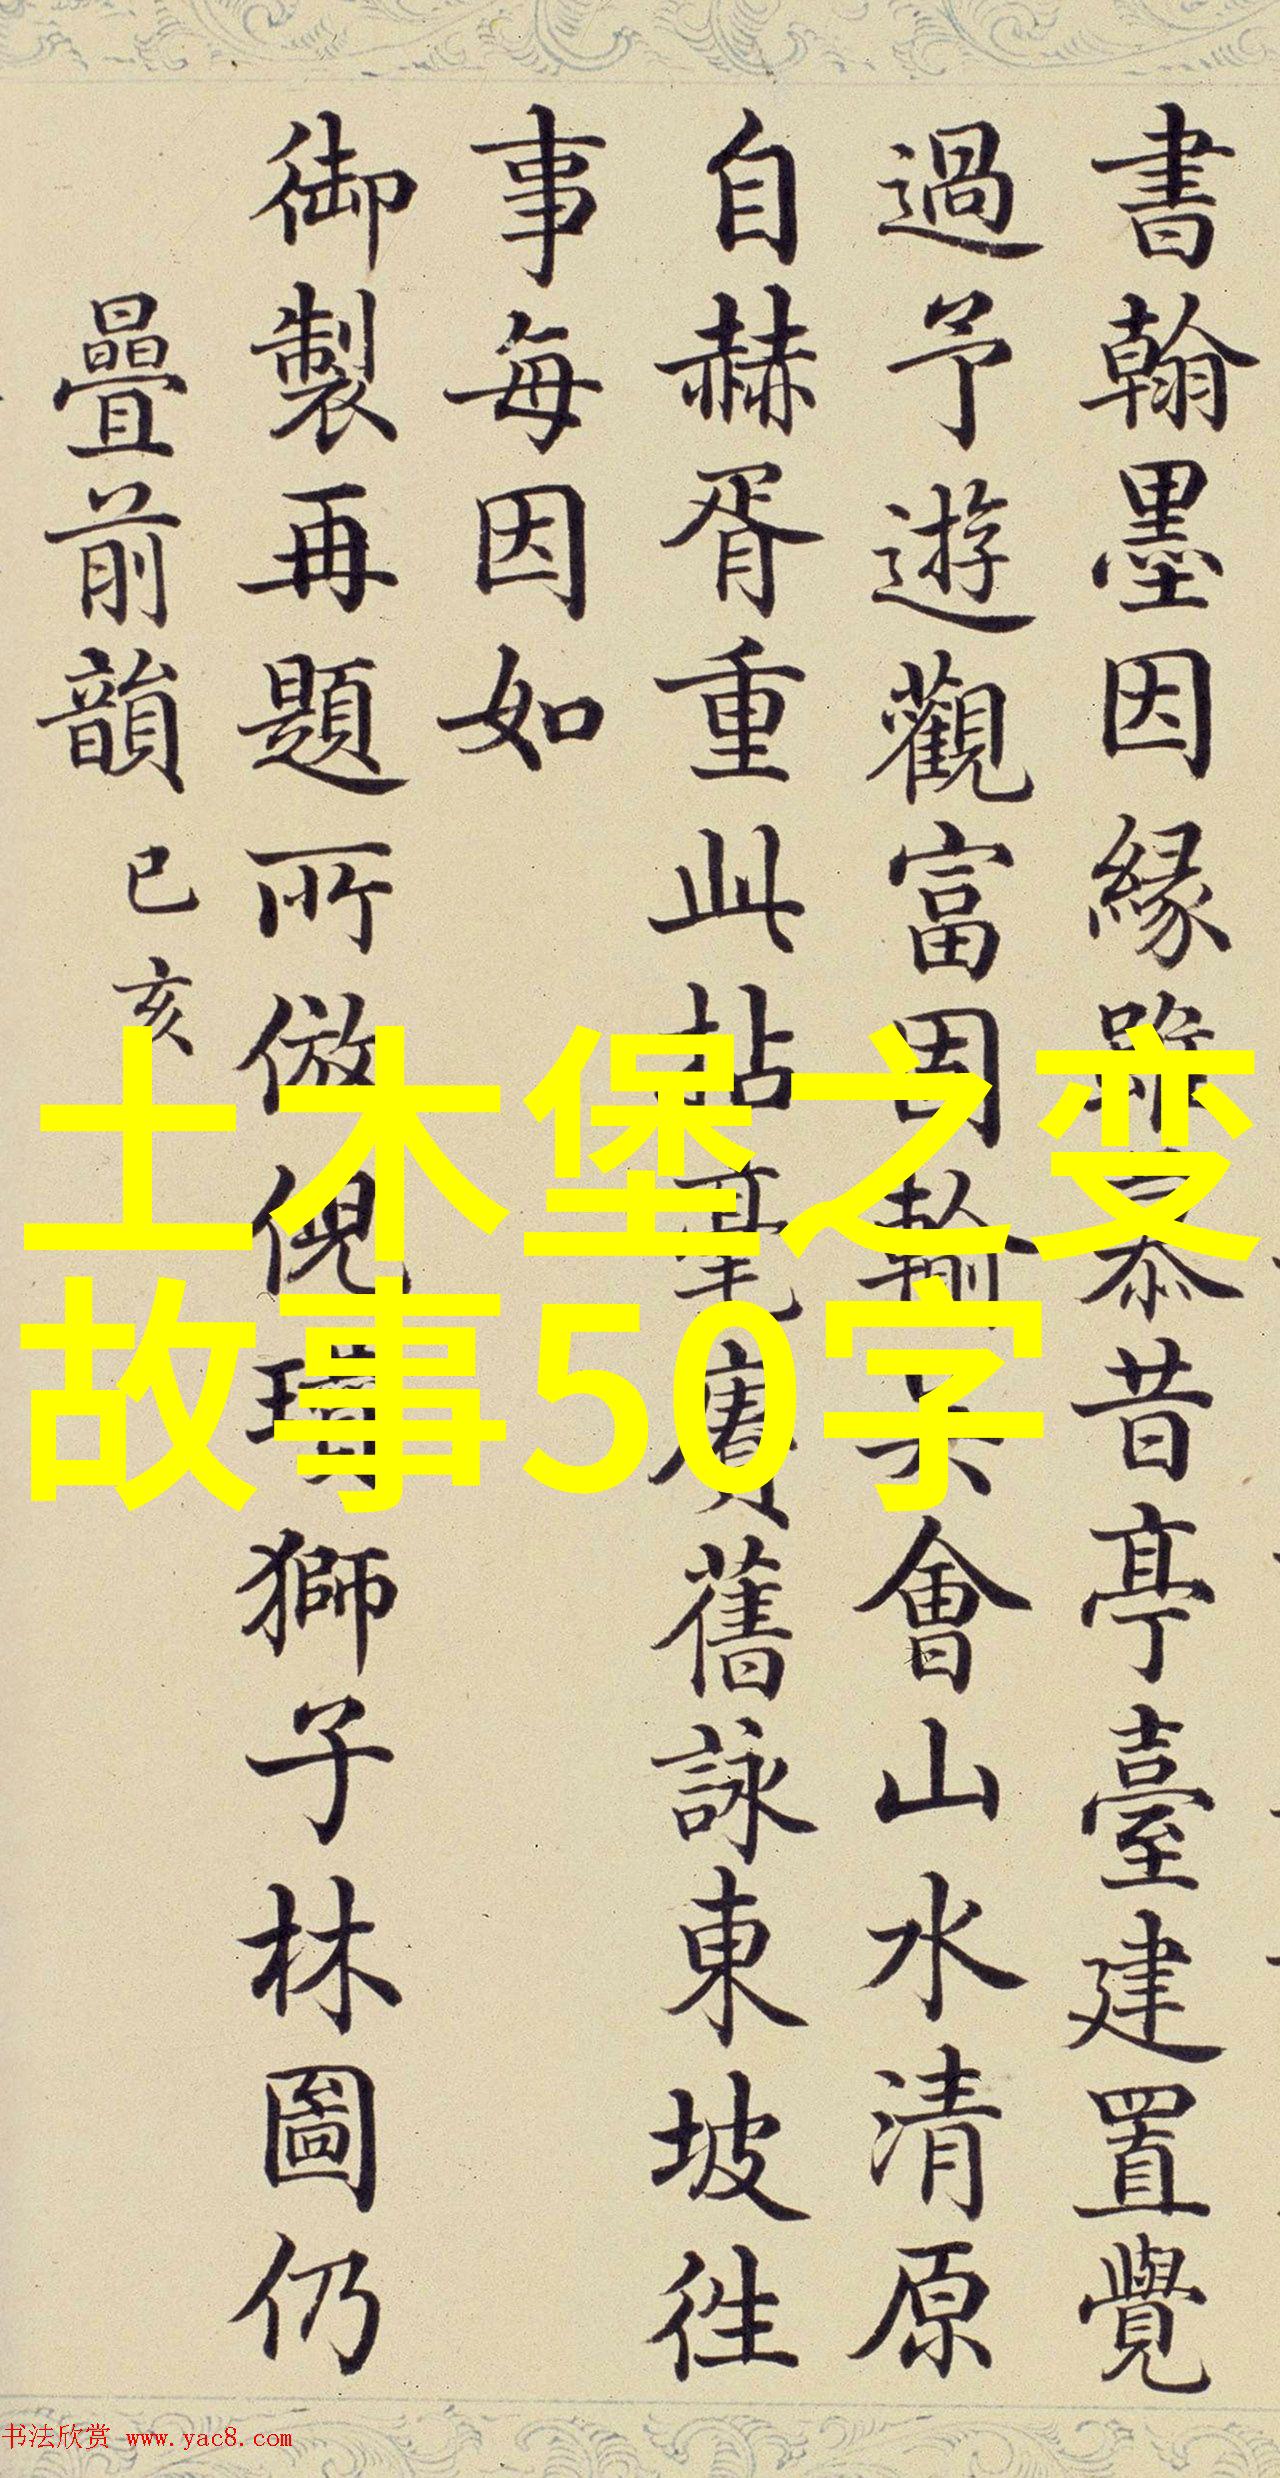 書翰墨因緣雖泰昔亭臺建置覺
過予遊觀富因輸失會山水清原
自赫胥重此拈毫賡舊詠東坡徃
事每因如
御製再題所倣倪瓚獅子林圖仍
疊前韻 己亥
土木堡之变
故事50字
书法欣赏 www.yac8.com